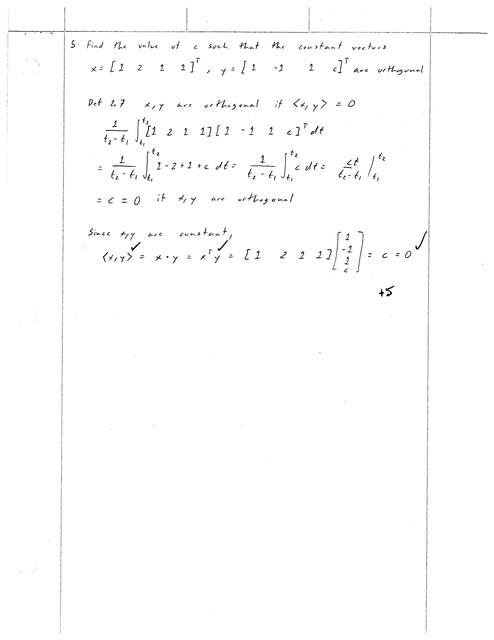 5 Find the value of c such that the constant vectors
x = [1 2 1 1]ᵀ, y = [1 -1 1 c]ᵀ are orthogonal
Def 2.7 x, y are orthogonal if <x, y> = 0
1/(t₂-t₁) ∫_{t₁}^{t₂} [1 2 1 1][1 -1 1 c]ᵀ dt
= 1/(t₂-t₁) ∫_{t₁}^{t₂} 1-2+1+c dt = 1/(t₂-t₁) ∫_{t₁}^{t₂} c dt = ct/(t₂-t₁) |_{t₁}^{t₂}
= c = 0 if x, y are orthogonal
Since x, y are constant,
<x, y> ✓ = x · y = xᵀy ✓ = [1 2 1 1] [1 -1 1 c] = c = 0 ✓
+5